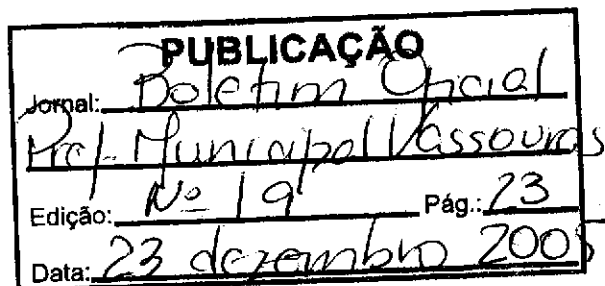 PUBLICAÇÃO
Jornal: Boletim Oficial
Pref. Municipal Vassouras
Edição: Nº 19 Pág.: 23
Data: 23 dezembro 2005